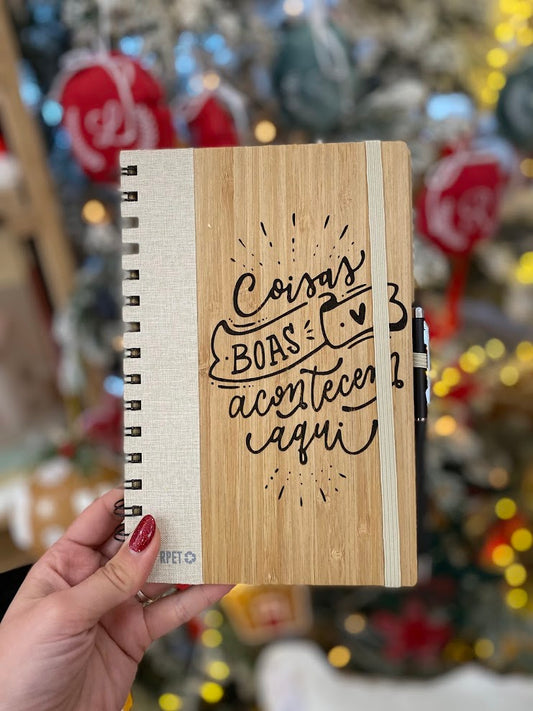 Coisas
BOAS
acontecem
aqui
RPET